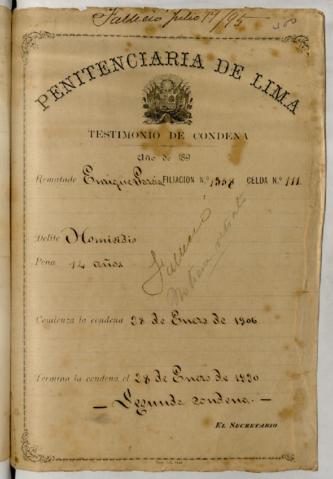 Falleció Julio 17/95
PENITENCIARIA DE LIMA
TESTIMONIO DE CONDENA
Año de 189
Rematado Enrique FILIACIÓN N.° 1358 CELDA N.° 111
Delito Homicidio
Falleció
Pena 14 años
Comienza la condena 28 de Enero de 1906
Termina la condena el 28 de Enero de 1920
— Segunda condena. —
EL SECRETARIO